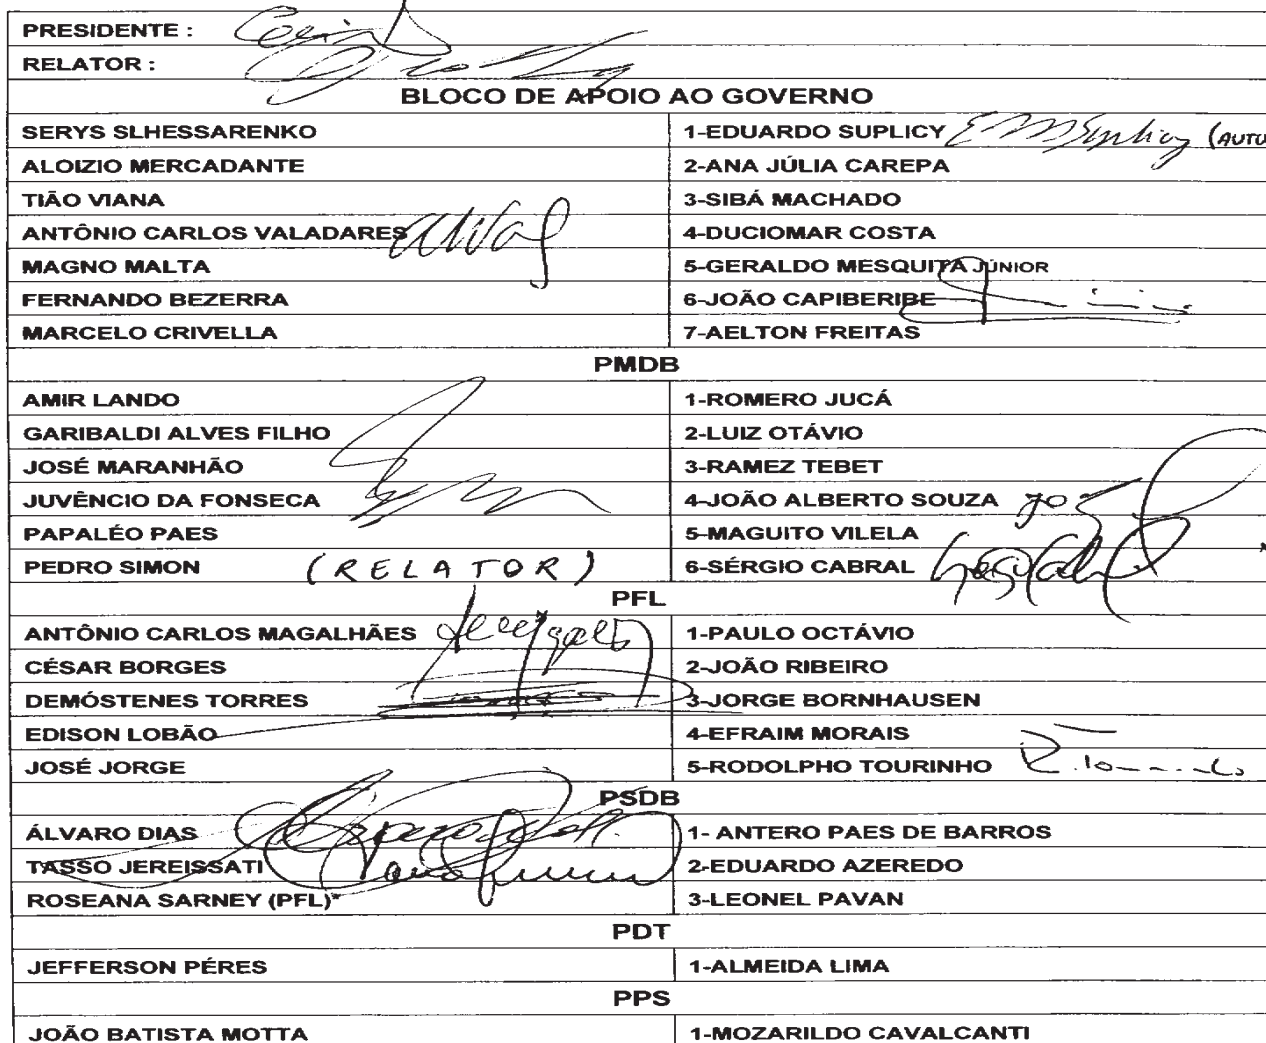 PRESIDENTE :
RELATOR :
BLOCO DE APOIO AO GOVERNO
SERYS SLHESSARENKO 1-EDUARDO SUPLICY E M Suplicy (AUTO
ALOIZIO MERCADANTE 2-ANA JÚLIA CAREPA
TIÃO VIANA 3-SIBÁ MACHADO
ANTÔNIO CARLOS VALADARES 4-DUCIOMAR COSTA
MAGNO MALTA 5-GERALDO MESQUITA JÚNIOR
FERNANDO BEZERRA 6-JOÃO CAPIBERIBE
MARCELO CRIVELLA 7-AELTON FREITAS
PMDB
AMIR LANDO 1-ROMERO JUCÁ
GARIBALDI ALVES FILHO 2-LUIZ OTÁVIO
JOSÉ MARANHÃO 3-RAMEZ TEBET
JUVÊNCIO DA FONSECA 4-JOÃO ALBERTO SOUZA
PAPALÉO PAES 5-MAGUITO VILELA
PEDRO SIMON (RELATOR) 6-SÉRGIO CABRAL
PFL
ANTÔNIO CARLOS MAGALHÃES 1-PAULO OCTÁVIO
CÉSAR BORGES 2-JOÃO RIBEIRO
DEMÓSTENES TORRES 3-JORGE BORNHAUSEN
EDISON LOBÃO 4-EFRAIM MORAIS
JOSÉ JORGE 5-RODOLPHO TOURINHO
PSDB
ÁLVARO DIAS 1- ANTERO PAES DE BARROS
TASSO JEREISSATI 2-EDUARDO AZEREDO
ROSEANA SARNEY (PFL)* 3-LEONEL PAVAN
PDT
JEFFERSON PÉRES 1-ALMEIDA LIMA
PPS
JOÃO BATISTA MOTTA 1-MOZARILDO CAVALCANTI